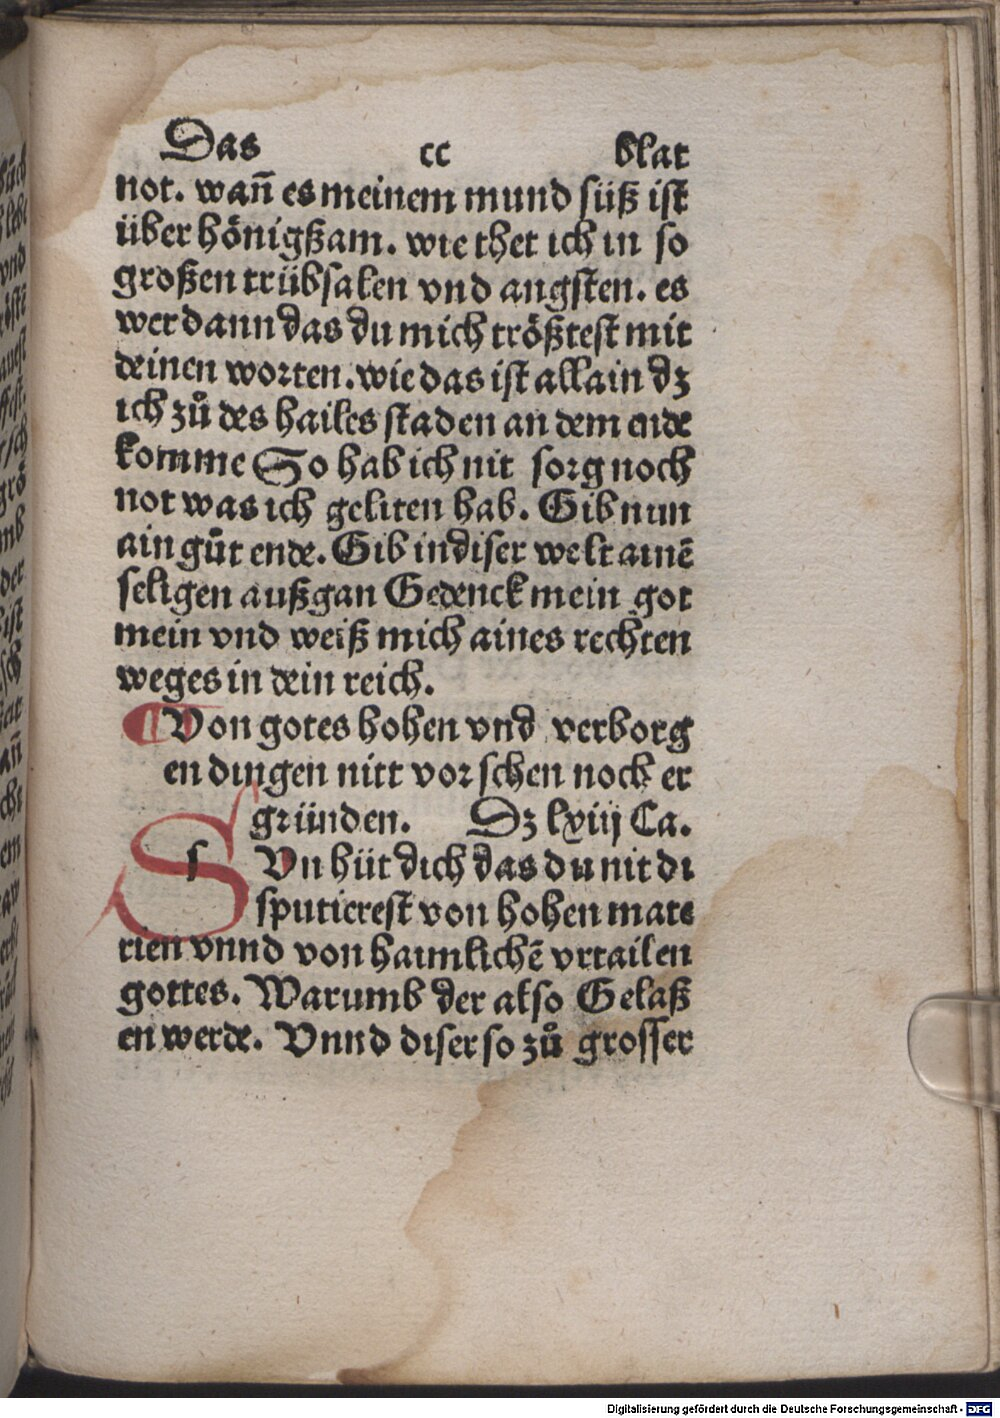 Das cc blat
not. wañ es meinem mund süß ist
über hönigßam. wie thet ich in so
großen trübsalen vnd angsten. es
wer dann das du mich trößtest mit
deinen worten. wie das ist allain dz
ich zů des hailes staden an dem ende
komme So hab ich nit sorg noch
not was ich geliten hab. Gib nun
ain gůt ende. Gib in diser welt ainē
seligen außgan Gedenck mein got
mein vnd weiß mich aines rechten
weges in dein reich.
¶Von gotes hohen vnd verborg
en dingen nitt vorschen nock er
gründen. Dz lxiij Ca.
SVn hüt dich das du nit di
sputierest von hohen mate
rien vnnd von haimlichē vrtailen
gottes. Warumb der also Gelaß
en werde. Vnnd diser so zů grosser
Digitalisierung gefördert durch die Deutsche Forschungsgemeinschaft - DFG